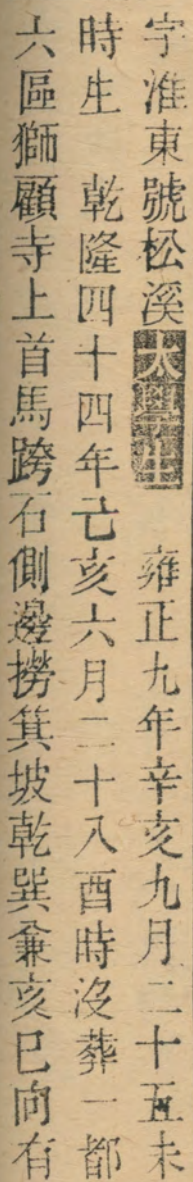 字淮東號松溪太學生　雍正九年辛亥九月二十五未
時生　乾隆四十四年己亥六月二十八酉時沒葬一都
六區獅顧寺上首馬跨石側邊撈箕坡乾巽兼亥巳向有